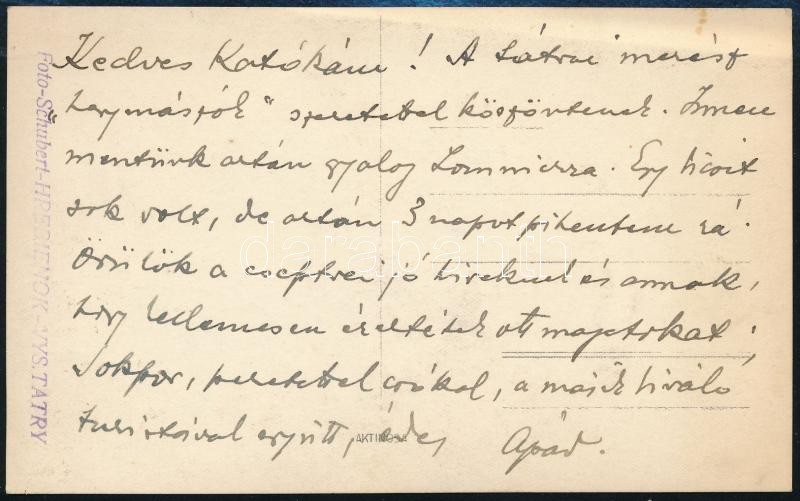 Kedves Katókám! A tátrai merész
"hegymászók" szeretettel köszöntenek. Innen
mentünk aztán gyalog Lomniczra. Egy kicsit
sok volt, de aztán 3 napot pihentem rá.
Örülök a jó híreknek és annak,
hogy kellemesen éreztétek ott magatokat;
szeretettel csókol, a másik kiváló
turistával együtt, édes Apád.
Foto-Schubert-HREBIENOK-VYS.TATRY
AKTINOSA
darabanth